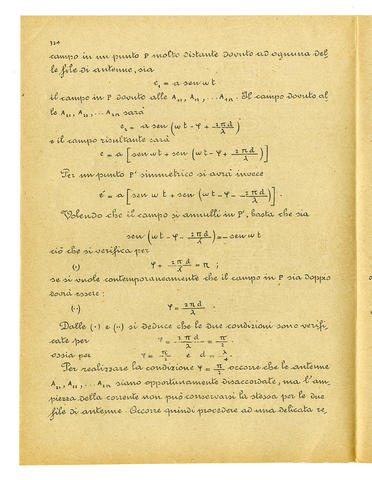 campo in un punto P molto distante dovuto ad ognuna del,
le file di antenne, sia
e₁ = a sen ω t
il campo in P dovuto alle A₁₁, A₁₂, ... A₁ₙ. Il campo dovuto al,
le A₂₁, A₂₂, ... A₂ₙ sarà
e₂ = a sen (ω t - φ + 2πd/λ)
e il campo risultante sarà
e = a [sen ω t + sen (ω t - φ + 2πd/λ)]
Per un punto P' simmetrico si avrà invece
e' = a [sen ω t + sen (ω t - φ - 2πd/λ)].
Volendo che il campo si annulli in P', basta che sia
sen (ω t - φ - 2πd/λ) = - sen ω t
ciò che si verifica per
(·) φ + 2πd/λ = π ;
se si vuole contemporaneamente che il campo in P sia doppio
dovrà essere:
(··) φ = 2πd/λ .
Dalle (·) e (··) si deduce che le due condizioni sono verifi,
cate per φ = 2πd/λ = π/2
ossia per φ = π/2 e d = λ/4
Per realizzare la condizione φ = π/2 occorre che le antenne
A₂₁, A₂₂, ... A₂ₙ siano opportunamente disaccordate, ma l'am,
piezza della corrente non può conservarsi la stessa per le due
file di antenne. Occorre quindi procedere ad una delicata re,